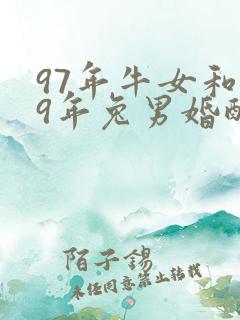 97年牛女和
9年兔男婚配
陌子锡
未经同意禁止转载